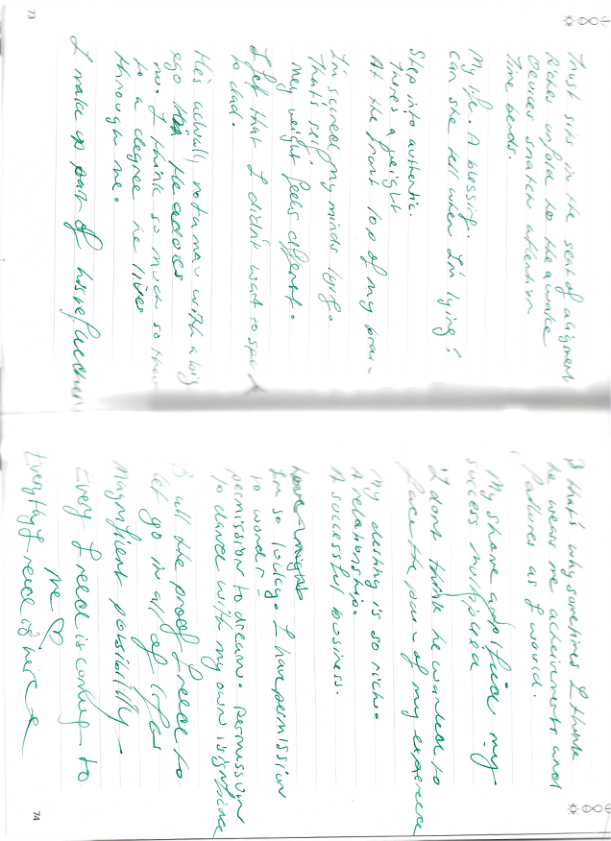 73
Trust sits in the seat of alignment
Riches unfold to the awake
Devices snatch attention
Time bends.
My life. A blessing.
can she tell when I'm lying?
Step into authentic.
There's a weight
At the front top of my brain
I'm scared my minds lying.
That's self.
My weight feels different.
I felt that I didn't want to speak
to dad.
He's actually not a man with a big
ego he adores
me. I think so much so that
to a degree he lives
through me.
I make up part of his reflection
& that's why sometimes I think
he wears me achievements and
failures as I would.
My shame amplified my
success multiplied
I dont think he wanted to
face the pain of my experience
My destiny is so rich.
A relationship.
A successful business.
I'm so lucky. I have permission
to wonder.
permission to dream. permission
to dance with my own significance
& all the proof I need to
let go in all of life's
Magnificent possibility
Every I need is coming to
me
Everything I need is here
74